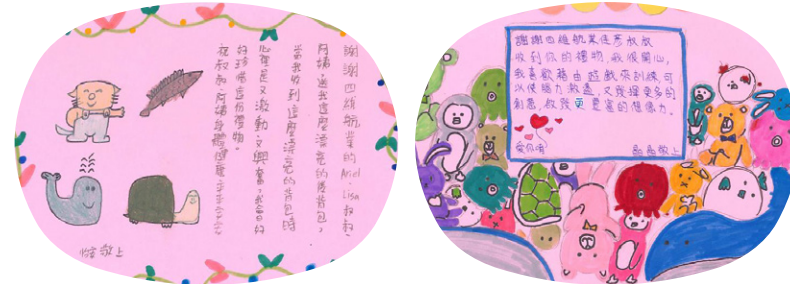 謝謝四維航業的Ariel
Lisa叔叔、
阿姨，送我這麼漂亮的背包？
當我收到這麼漂亮的背包時
心裡是又激動又興奮，我會好
好珍惜這份禮物。
祝叔叔、阿姨
敬上
謝謝四維航業
叔叔
收到你的禮物，我很開心，
我喜歡藉由遊戲來訓練，可
以使腦力激盪，又發揮更多的
創意，啟發更豐富的想像力。
愛你唷
敬上